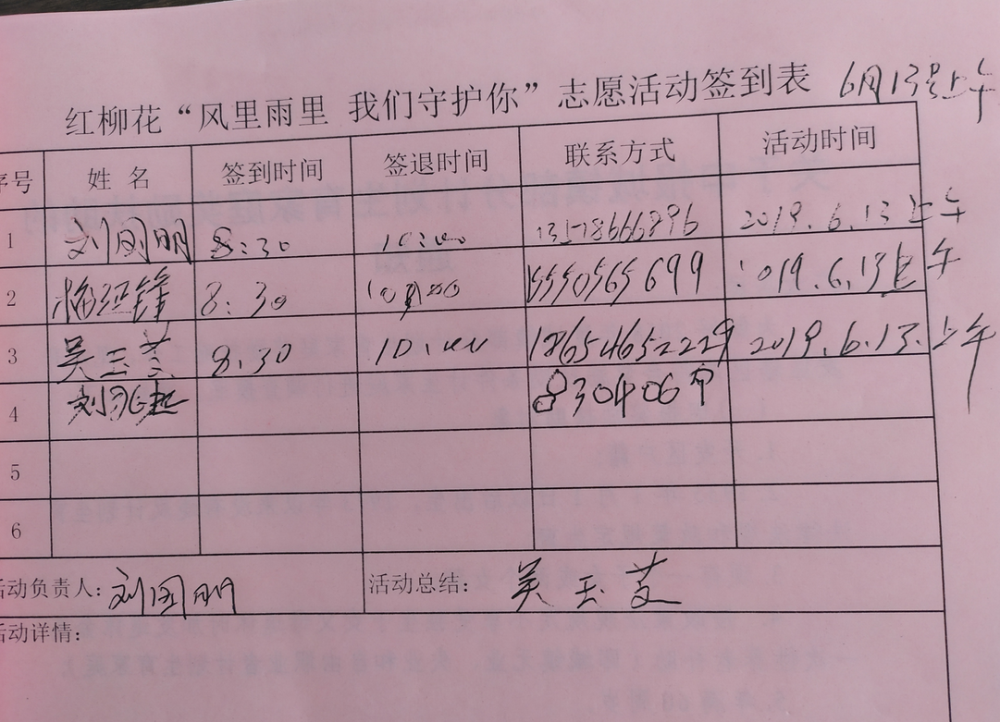 红柳花“风里雨里 我们守护你”志愿活动签到表 6月13号上午
序号 姓名 签到时间 签退时间 联系方式 活动时间
1 刘国明 8:30 10:00 2019.6.13上午
2 8:30 10:00 15550565699 2019.6.13上午
3 吴玉芝 8:30 10:00 18654652229 2019.6.13.上午
4 830406
5
6
活动负责人: 刘国明 活动总结: 吴玉芝
活动详情: